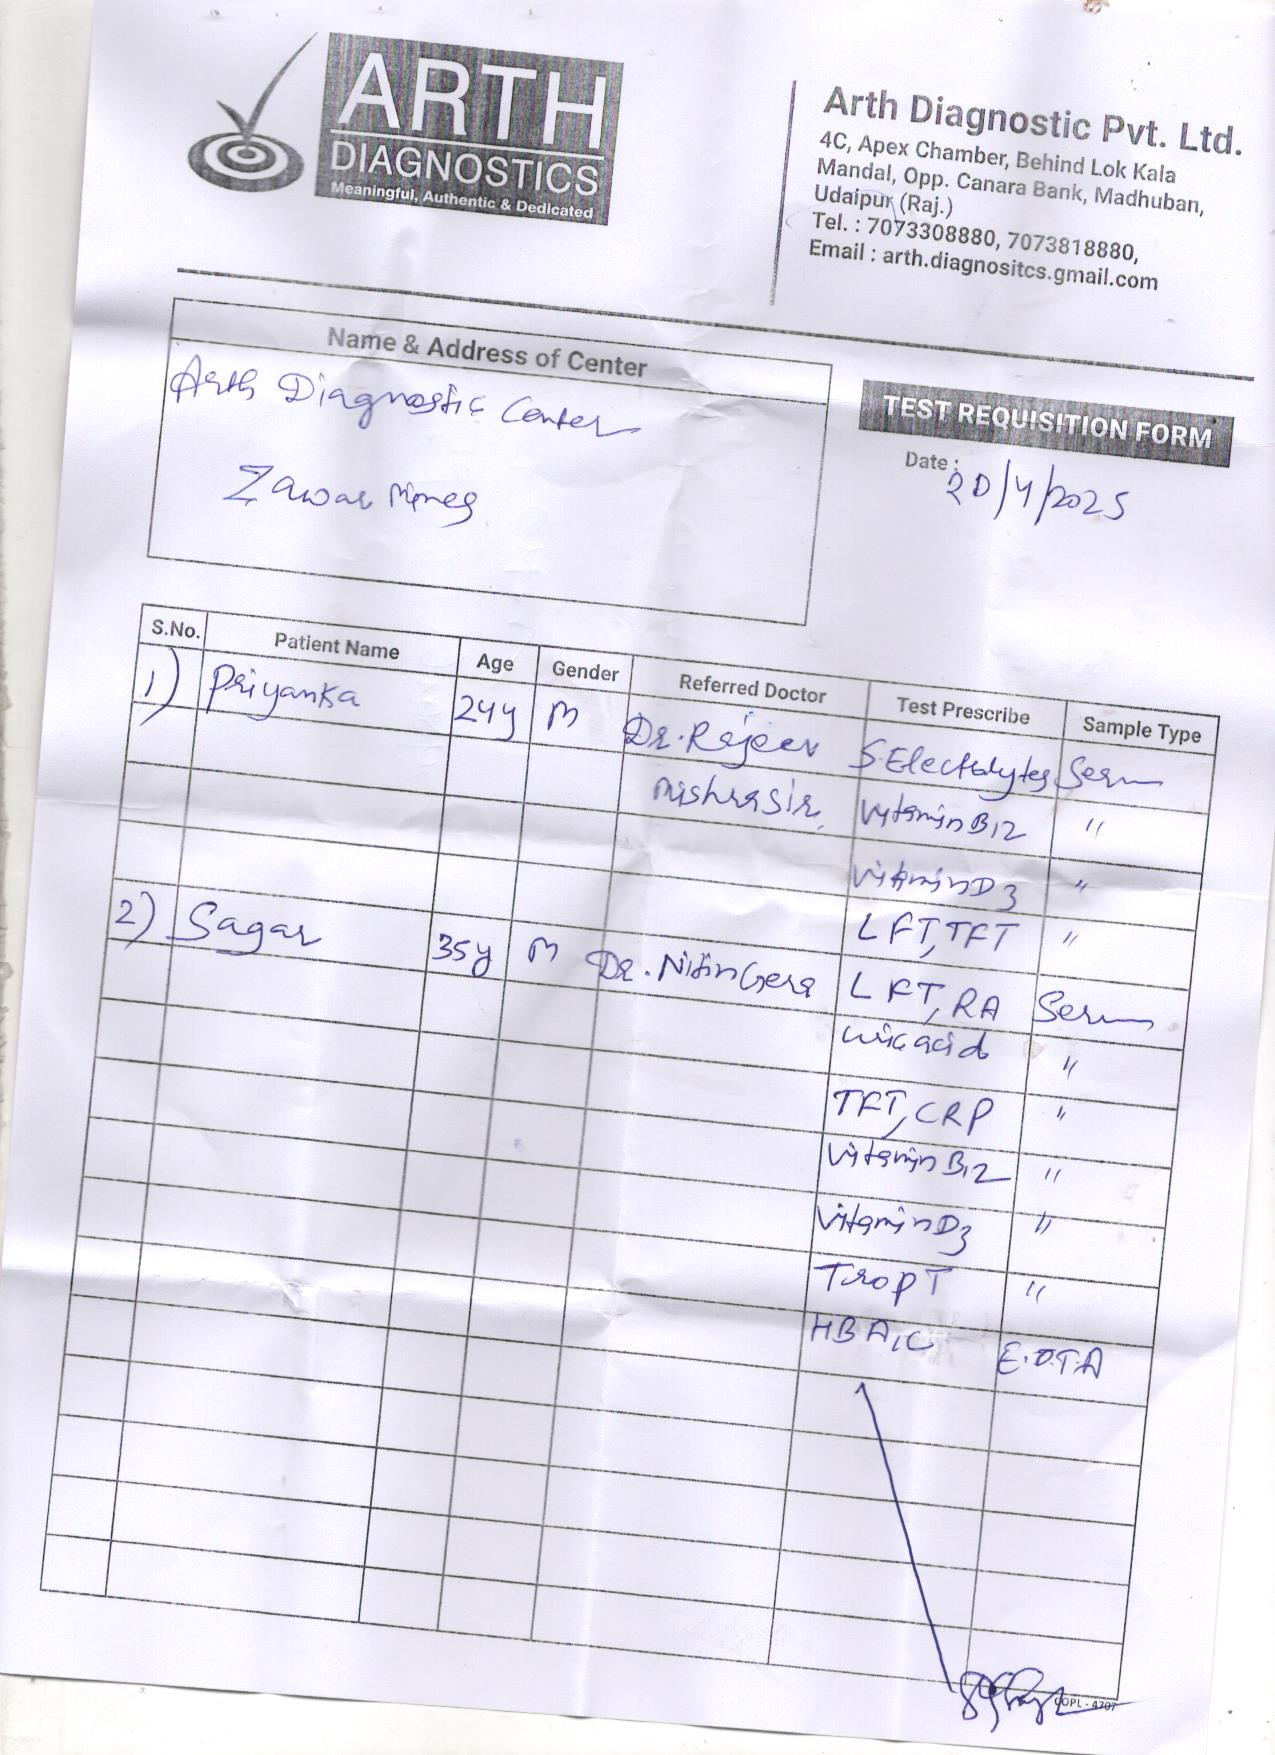 ARTH
DIAGNOSTICS
Meaningful, Authentic & Dedicated
Arth Diagnostic Pvt. Ltd.
4C, Apex Chamber, Behind Lok Kala
Mandal, Opp. Canara Bank, Madhuban,
Udaipur (Raj.)
Tel. : 7073308880, 7073818880,
Email : arth.diagnositcs.gmail.com
Name & Address of Center
Arth Diagnostic Center
Zawar Mines
TEST REQUISITION FORM
Date : 20/4/2025
S.No. Patient Name Age Gender Referred Doctor Test Prescribe Sample Type
1) Priyanka 24y M Dr. Rajeev S.Electolytes Serum
Mishra Sir, Vitamin B12 "
Vitamin D3 "
LFT, TFT "
2) Sagar 35y M Dr. Nitin Gera LFT, RA Serum
uric acid "
TFT, CRP "
Vitamin B12 "
Vitamin D3 "
Trop T "
HBA1C E.D.T.A
COPL - 4707